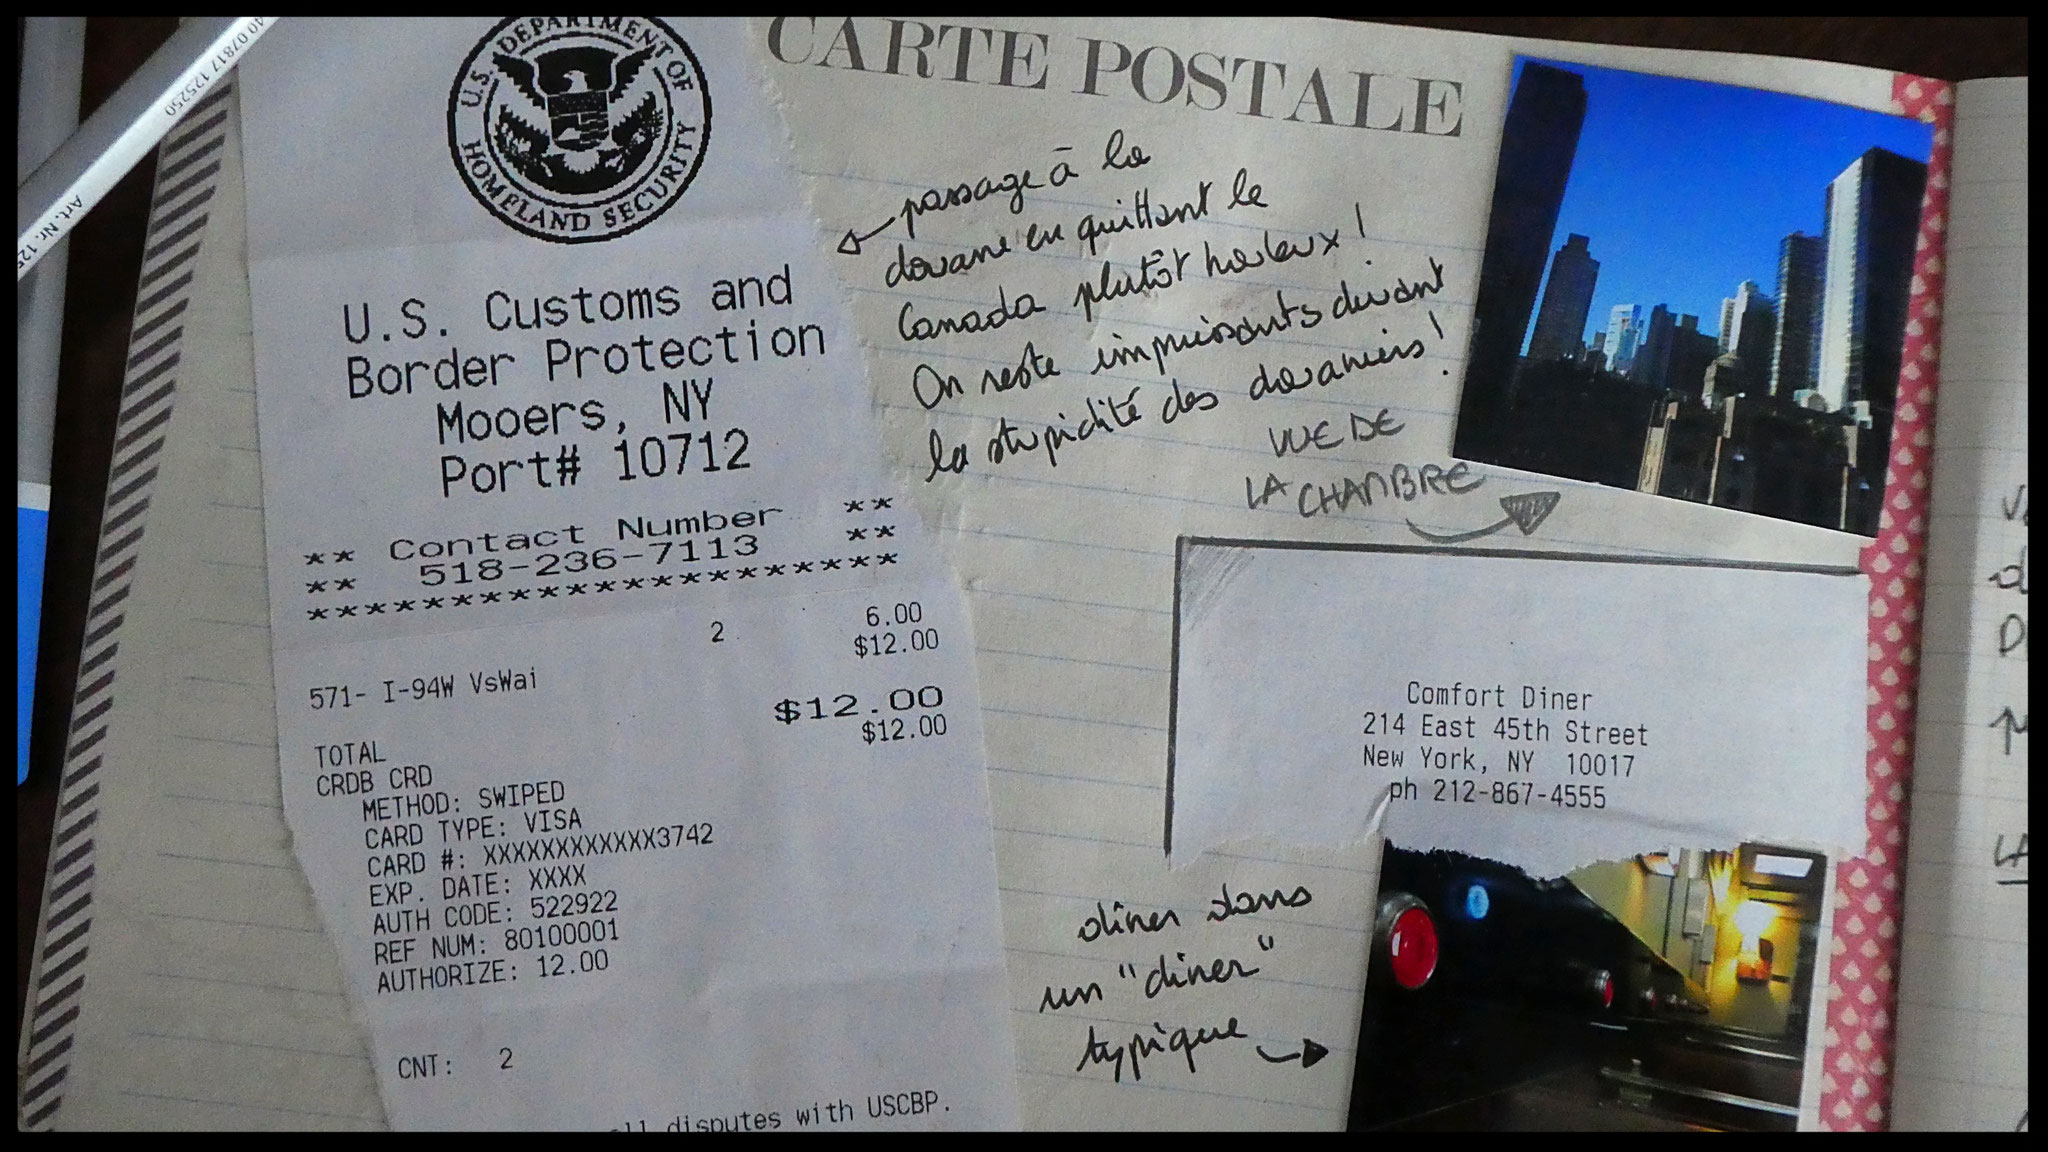 40 07817 125250
Art. Nr. 125
U.S. DEPARTMENT OF
HOMELAND SECURITY
U.S. Customs and
Border Protection
Mooers, NY
Port# 10712
** Contact Number **
** 518-236-7113 **
*********************
2 6.00
$12.00
571- I-94W VsWai
$12.00
$12.00
TOTAL
CRDB CRD
METHOD: SWIPED
CARD TYPE: VISA
CARD #: XXXXXXXXXXXX3742
EXP. DATE: XXXX
AUTH CODE: 522922
REF NUM: 80100001
AUTHORIZE: 12.00
CNT: 2
all disputes with USCBP.
CARTE POSTALE
passage à la
douane en quittant le
Canada plutôt houleux !
On reste impuissants devant
la stupidité des douaniers !
VUE DE
LA CHAMBRE
Comfort Diner
214 East 45th Street
New York, NY 10017
ph 212-867-4555
dîner dans
un "diner"
typique